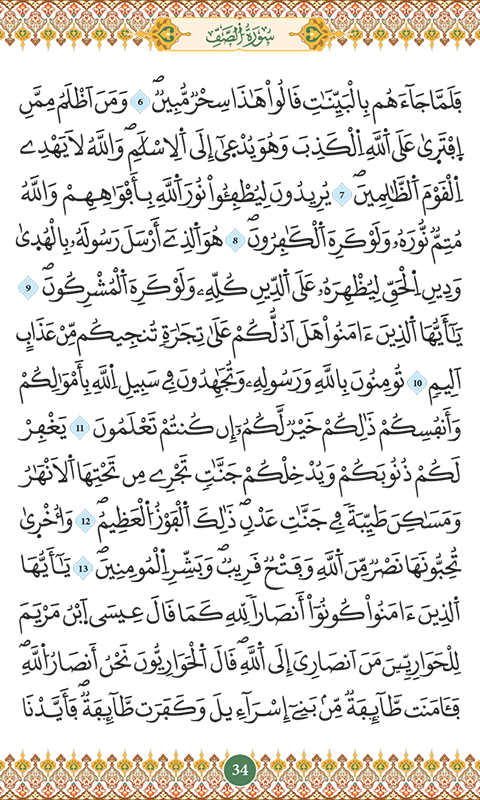 سُورَةُ الصَّفِّ
فَلَمَّا جَآءَهُم بِالْبَيِّنَٰتِ قَالُواْ هَٰذَا سِحْرٞ مُّبِينٞۖ 6 وَمَنَ اَظْلَمُ مِمَّنِ
اِفْتَر۪يٰ عَلَى اَللَّهِ اِلْكَذِبَ وَهُوَ يُدْع۪يٰٓ إِلَى اَلِاسْلَٰمِۖ وَاللَّهُ لَا يَهْدِے
اِلْقَوْمَ اَلظَّٰلِمِينَۖ 7 يُرِيدُونَ لِيُطْفِـُٔواْ نُورَ اَللَّهِ بِأَفْوَٰهِهِمْ وَاللَّهُ
مُتِمّٞ نُّورَهُۥ وَلَوْ كَرِهَ اَلْكَٰفِرُونَۖ 8 هُوَ اَلذِےٓ أَرْسَلَ رَسُولَهُۥ بِالْهُد۪يٰ
وَدِينِ اِلْحَقِّ لِيُظْهِرَهُۥ عَلَى اَلدِّينِ كُلِّهِۦ وَلَوْ كَرِهَ اَلْمُشْرِكُونَۖ 9
يَٰٓأَيُّهَا اَلذِينَ ءَامَنُواْ هَلَ اَدُلُّكُمْ عَلَىٰ تِجَٰرَةٖ تُنجِيكُم مِّنْ عَذَابٍ
اَلِيمٖ 10 تُومِنُونَ بِاللَّهِ وَرَسُولِهِۦ وَتُجَٰهِدُونَ فِے سَبِيلِ اِللَّهِ بِأَمْوَٰلِكُمْ
وَأَنفُسِكُمْ ذَٰلِكُمْ خَيْرٞ لَّكُمُۥٓ إِن كُنتُمْ تَعْلَمُونَ 11 يَغْفِرْ
لَكُمْ ذُنُوبَكُمْ وَيُدْخِلْكُمْ جَنَّٰتٖ تَجْرِے مِن تَحْتِهَا اَلَانْهَٰرُ
وَمَسَٰكِنَ طَيِّبَةٗ فِے جَنَّٰتِ عَدْنٖۖ ذَٰلِكَ اَلْفَوْزُ الْعَظِيمُۖ 12 وَأُخْر۪يٰ
تُحِبُّونَهَا نَصْرٞ مِّنَ اَللَّهِ وَفَتْحٞ قَرِيبٞۖ وَبَشِّرِ اِلْمُومِنِينَۖ 13 يَٰٓأَيُّهَا
اَلذِينَ ءَامَنُواْ كُونُوٓاْ أَنصَاراٗ لِّلهِ كَمَا قَالَ عِيسَى اَبْنُ مَرْيَمَ
لِلْحَوَارِيِّـۧنَ مَنَ اَنصَارِيَ إِلَى اَللَّهِۖ قَالَ اَلْحَوَارِيُّونَ نَحْنُ أَنصَارُ اُللَّهِۖ
فَـَٔامَنَت طَّآئِفَةٞ مِّنۢ بَنِےٓ إِسْرَآءِيلَ وَكَفَرَت طَّآئِفَةٞۖ فَأَيَّدْنَا
34